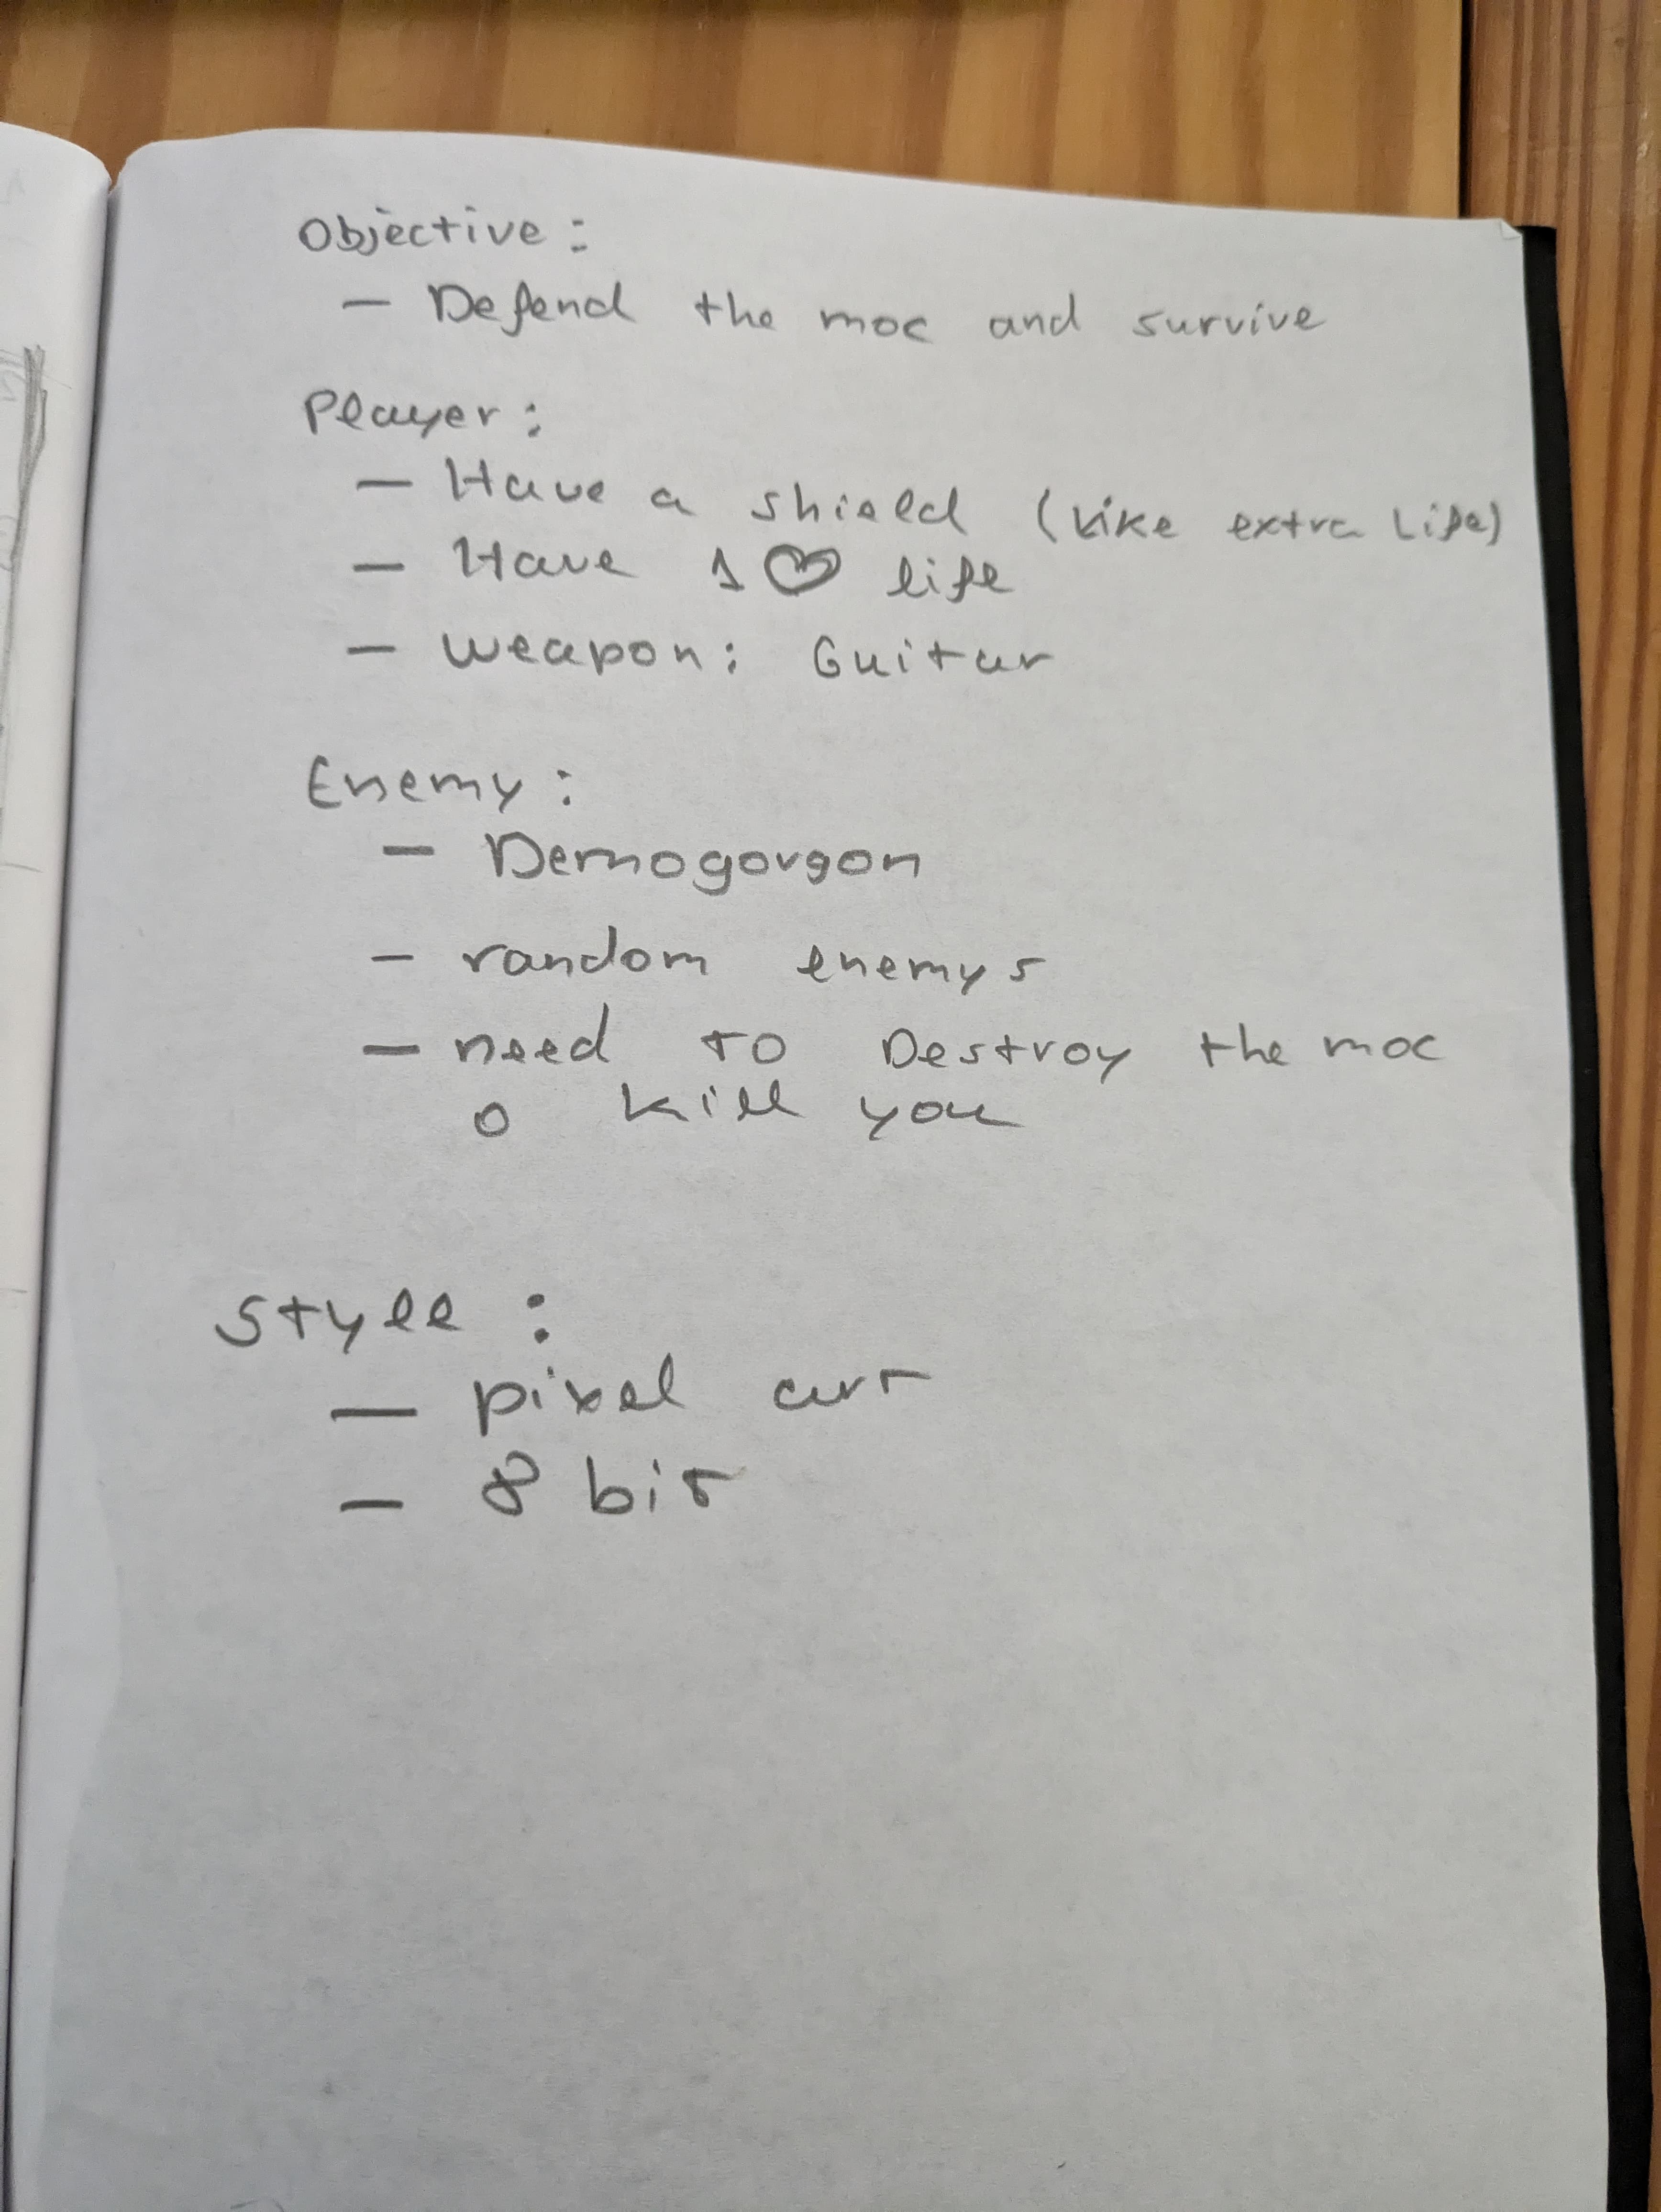 Objective:
- Defend the moc and survive
Player:
- Have a shield (Like extra Life)
- Have 1 ♡ life
- weapon: Guitar
Enemy:
- Demogorgon
- random enemys
- need to Destroy the moc
o kill you
Style:
- pixel art
- 8 bit